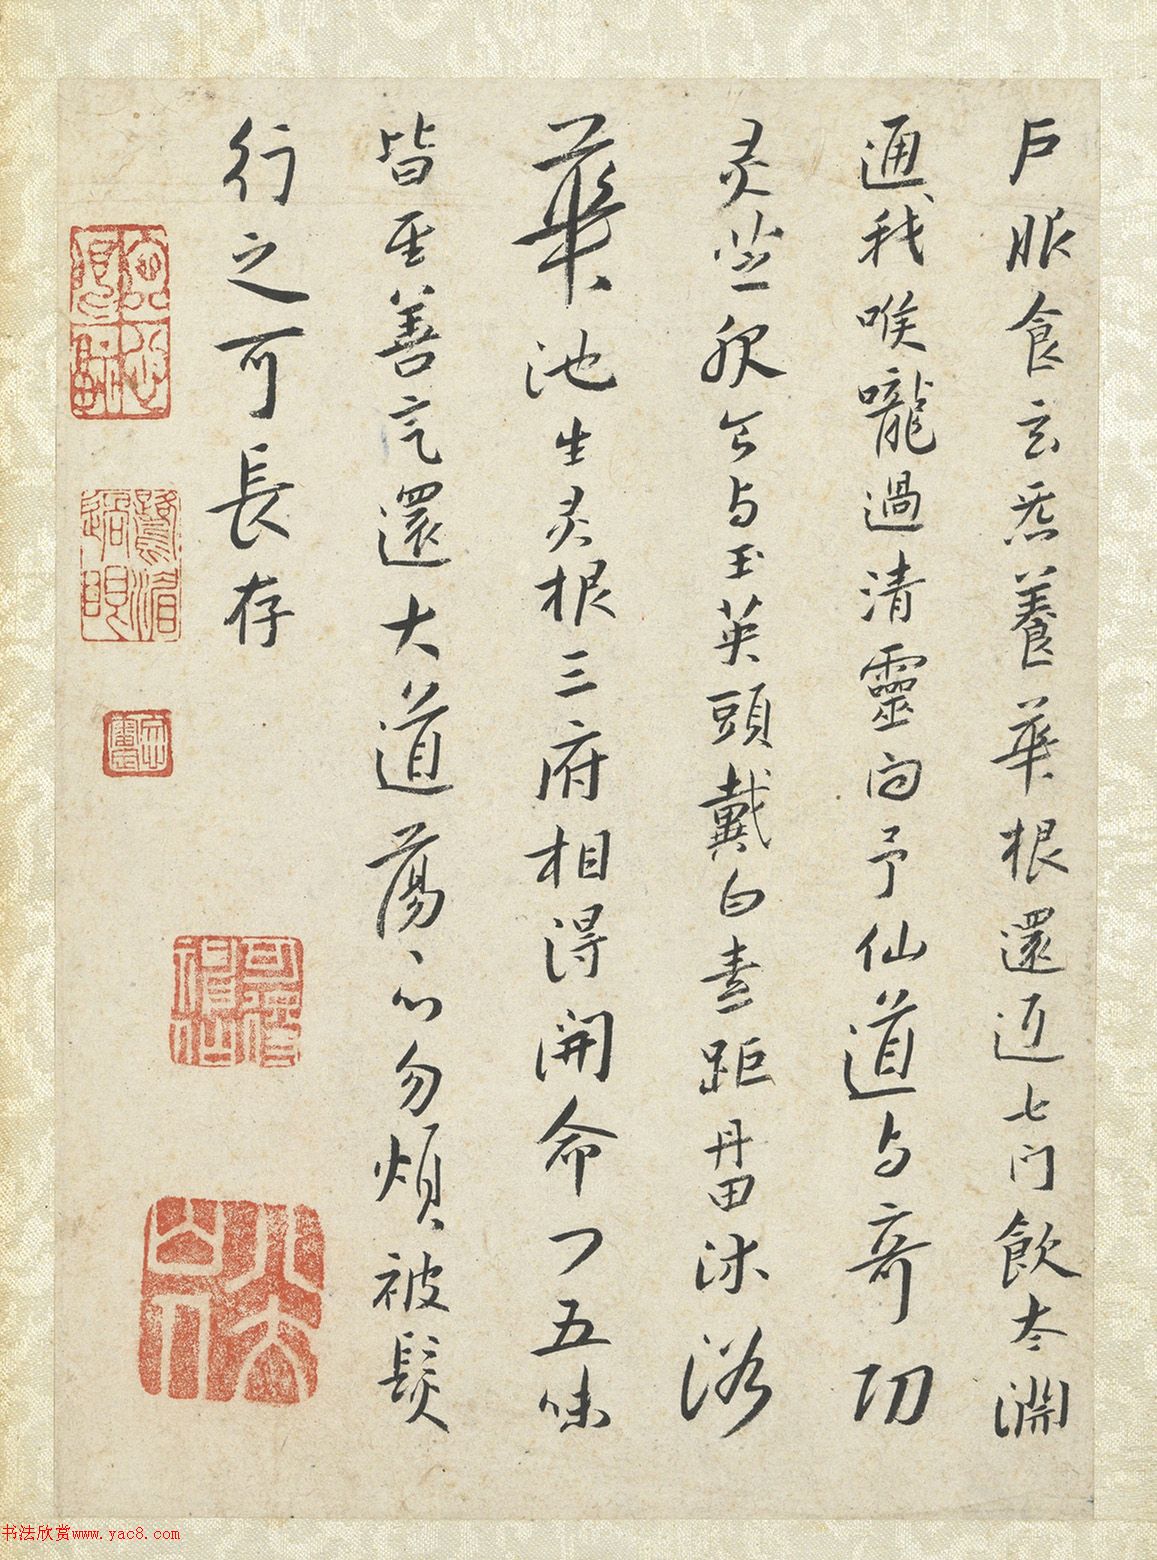 戶服食玄炁養華根還返七門飲太淵
通我喉嚨過清靈向予仙道与奇功
灵芝与玉英頭戴白素距丹田沐浴
華池生灵根三府相得開命门五味
皆至善氣還大道蕩〻心勿煩被髮
行之可長存
书法欣赏www.yac8.com